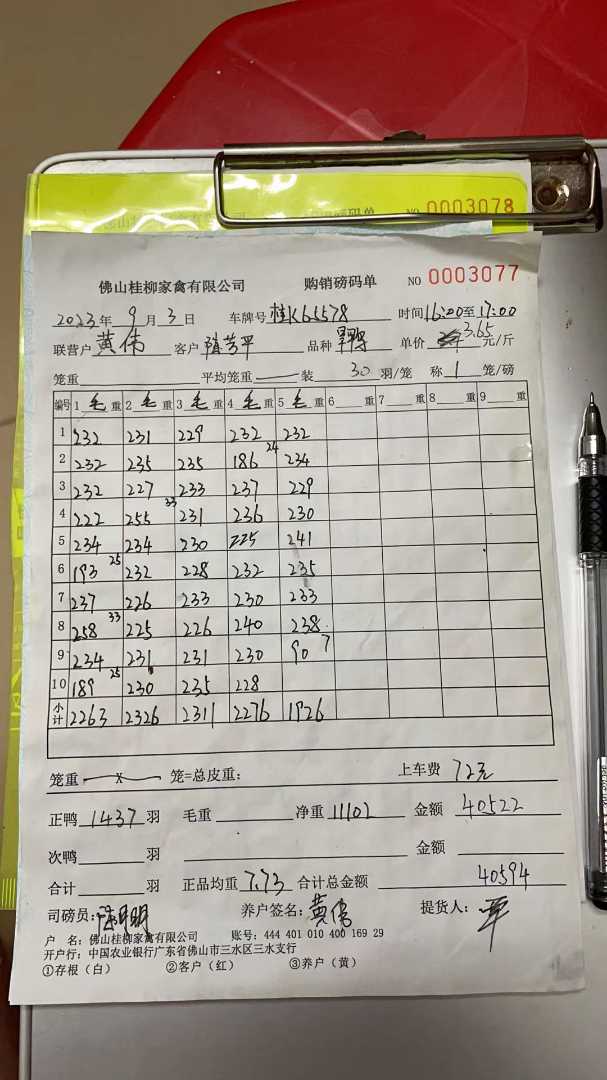 NO 0003078
佛山桂柳家禽有限公司 购销磅码单 NO 0003077
2023年 9月 3日 车牌号 桂K65578 时间16:00至17:00
联营户 黄伟 客户 平 品种 单价 3.65元/斤
笼重 平均笼重 装 30 羽/笼 称 1 笼/磅
编号 1 毛 重 2 毛 重 3 毛 重 4 毛 重 5 毛 重 6 重 7 重 8 重 9 重
1 232 231 229 232 232
2 232 235 235 186 24 234
3 232 227 233 237 229
4 222 255 33 231 236 230
5 234 234 230 225 241
6 193 25 232 228 232 235
7 237 226 233 230 233
8 258 33 225 226 240 238
9 234 231 231 230 90 7
10 189 25 230 235 228
小计 2263 2326 2311 2276 1926
笼重 x 笼=总皮重: 上车费 72元
正鸭 1437 羽 毛重 净重 11102 金额 40522
次鸭 羽 金额
合计 羽 正品均重 7.73 合计总金额 40594
司磅员: 明 养户签名: 黄伟 提货人: 平
户 名: 佛山桂柳家禽有限公司 账号: 444 401 010 400 169 29
开户行: 中国农业银行广东省佛山市三水区三水支行
①存根（白） ②客户（红） ③养户（黄）